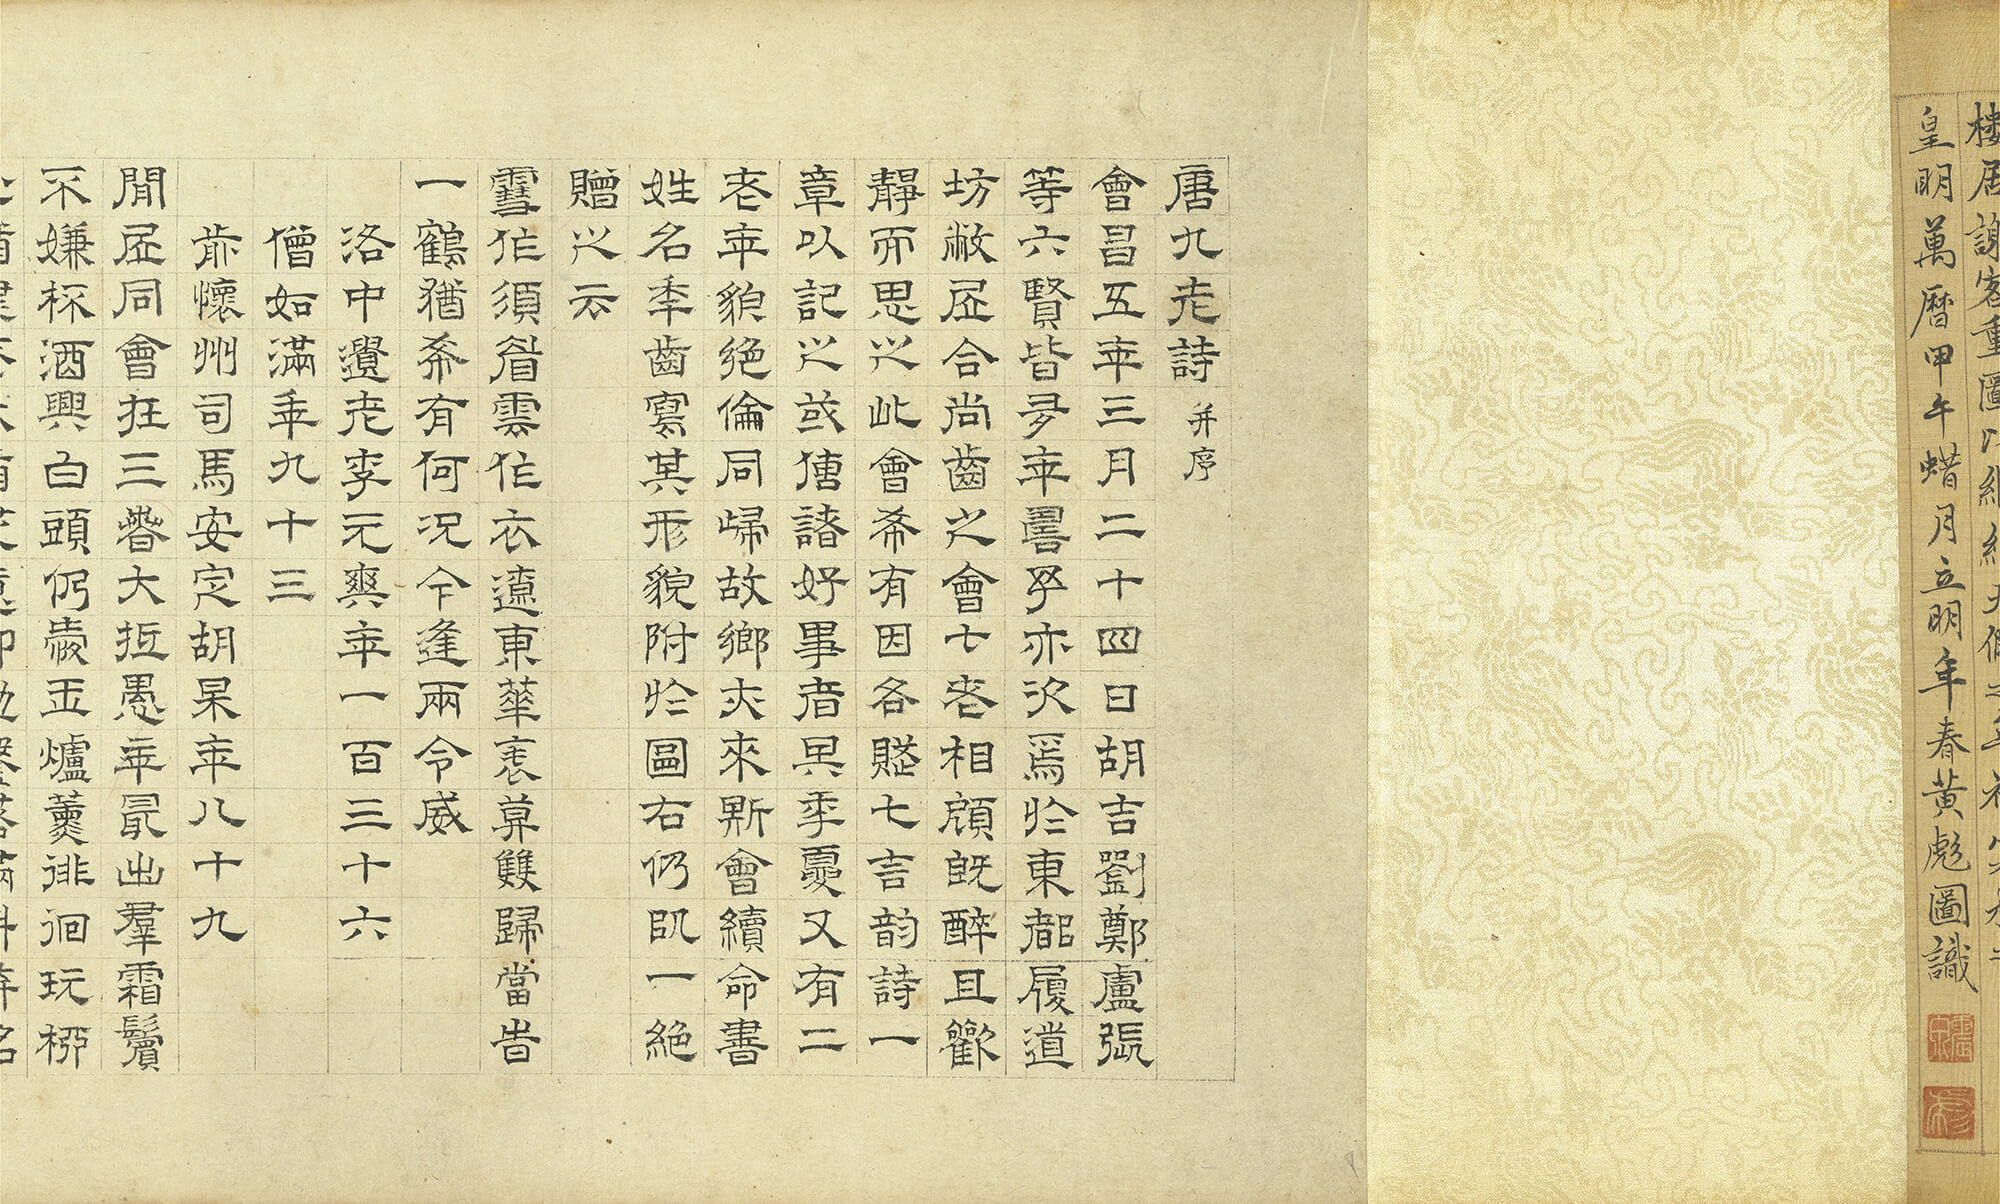 皇明萬曆甲午蜡月立明年春黃彪圖識
唐九老詩并序
會昌五年三月二十四日胡吉劉鄭盧張
等六賢皆多年壽予亦次焉於東都履道
坊敝居合尚齒之會七老相顧既醉且歡
靜而思之此會希有因各賦七言韵詩一
章以記之或傳諸好事者其年夏又有二
老年貌絕倫同歸故鄉亦來斯會續命書
姓名年齒寫其形貌附於圖右仍賦一絕
贈之云
雪作須眉雲作衣遼東華表暮雙歸當昔
一鶴猶希有何況今逢兩令威
洛中遺老李元爽年一百三十六
僧如滿年九十三
前懷州司馬安定胡杲年八十九
閒居同會在三春大抵愚年最出羣霜鬢
不嫌杯酒興白頭仍愛玉爐薰徘徊玩柳